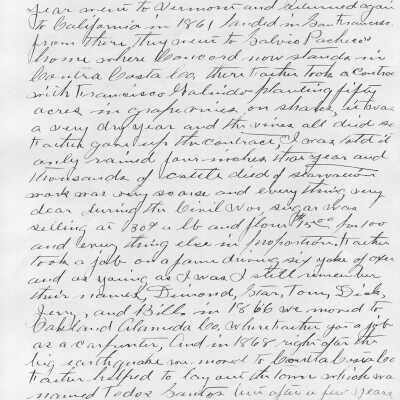 year went to Vermont and returned again
to California in 1861 landed in San Francisco
from there they went to Salvio Pacheco's
home where Concord now stands in
Contra Costa Co, there Father took a contract
with Francisco Galindo planting fifty
acres in grapevines on shares, it was
a very dry year and the vines all died so
Father gave up the contract, I was told it
only rained four inches that year and
thousands of cattle died of starvation
work was very scarse and everything very
dear during the Civil War, sugar was
selling at 30¢ a lb and flour $15.00 per 100
and everything else in proportion. Father
took a job on a farm driving six yoke of oxen
and as young as I was I still remember
their names, Dimond, Star, Tom, Dick,
Jerry, and Bill. in 1866 we moved to
Oakland Alameda Co, where Father got a job
as a carpenter, And in 1868 right after the
big earthquake we moved to Contra Costa Co
Father helped to lay out the town which was
named Todos Santos but after a few years